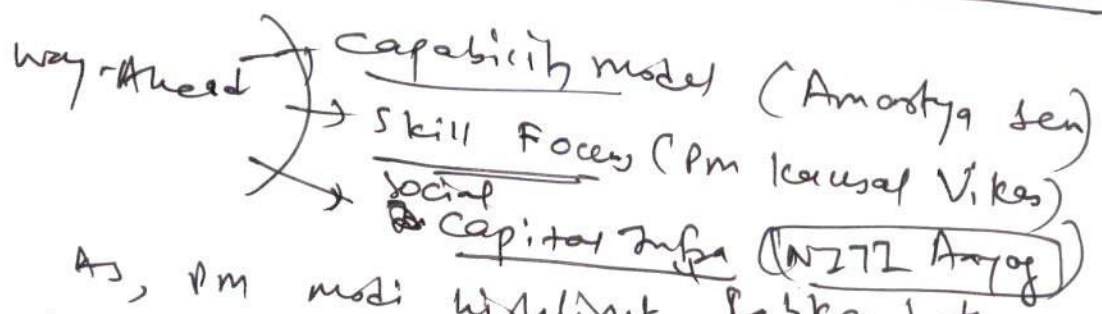 Way-Ahead → Capability model (Amartya Sen)
→ Skill Focus (PM Kausal Vikas)
→ Social Capital Infra (NITI Aayog)
As, PM modi